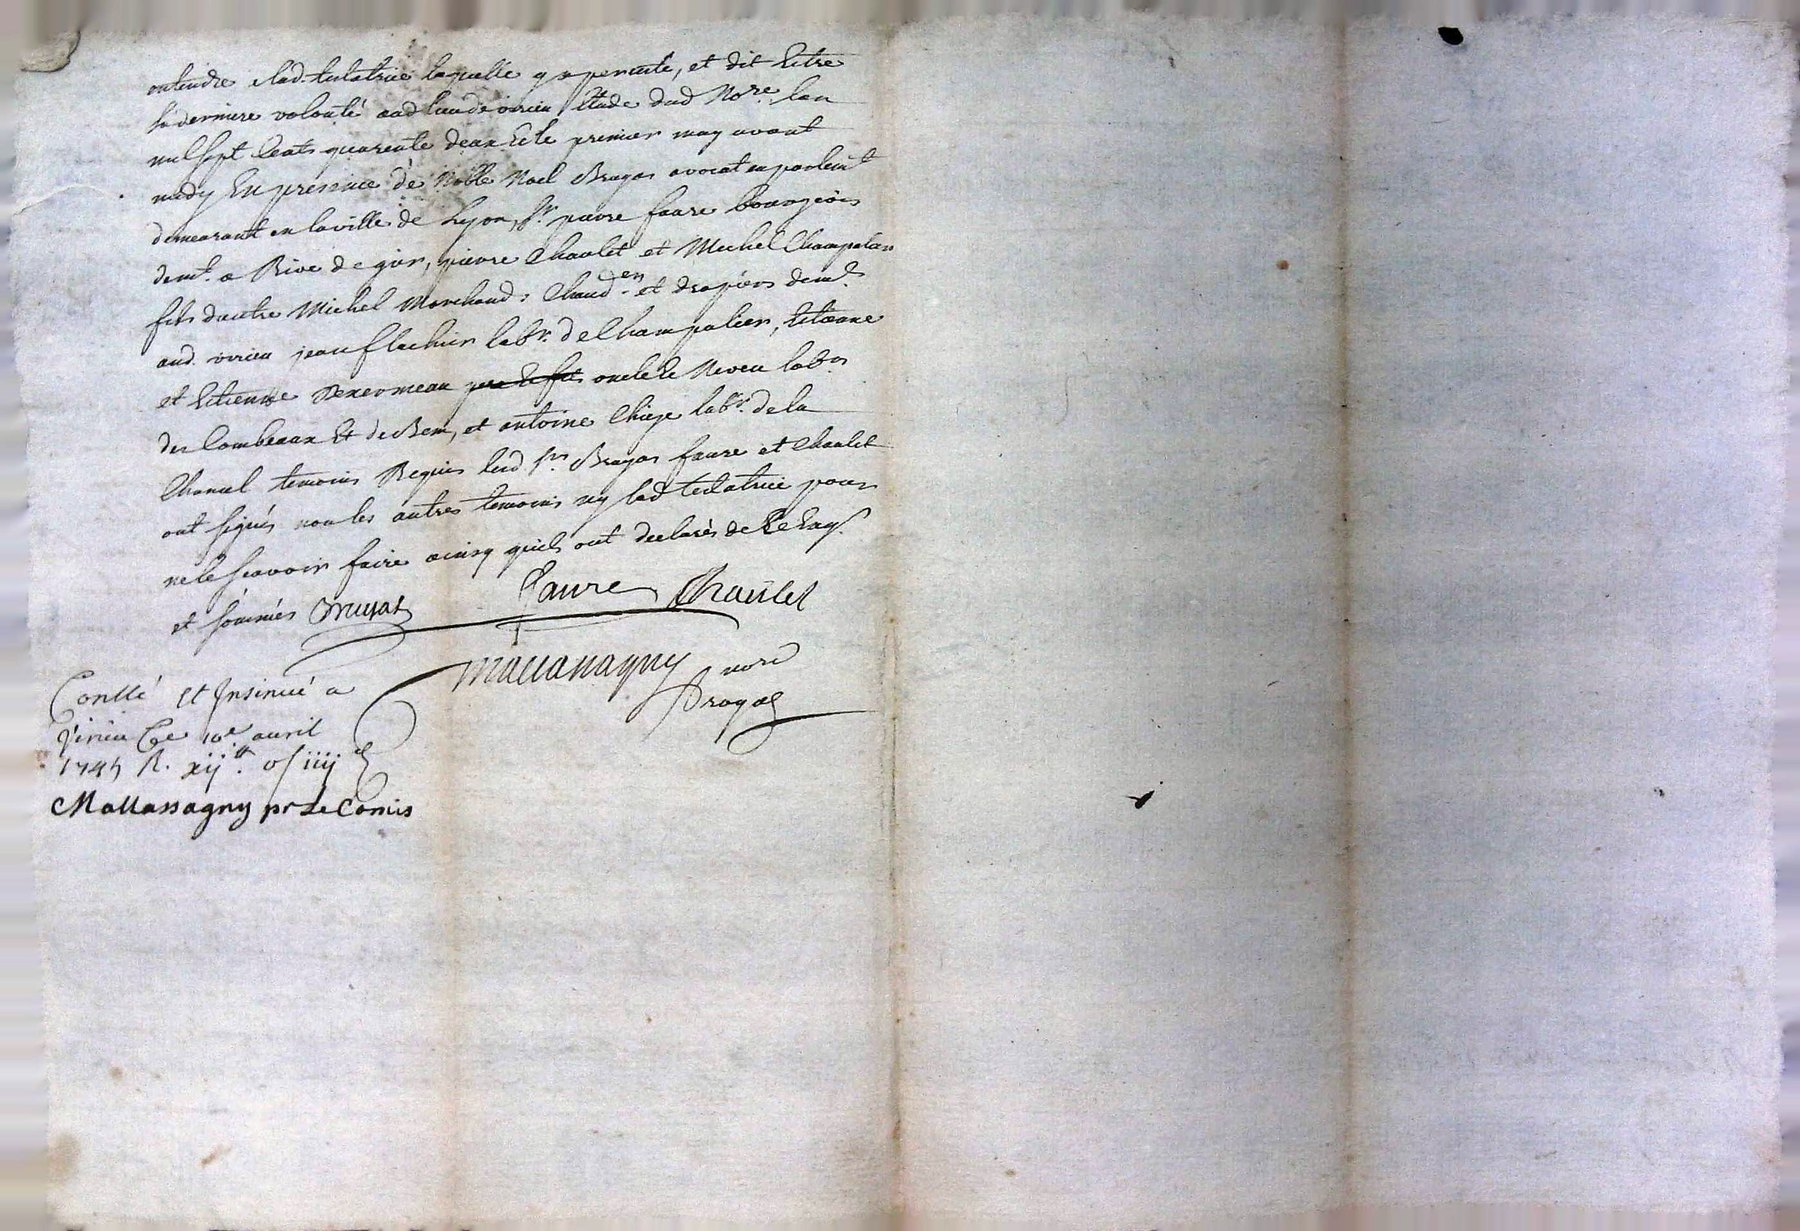 entendre a lad. testatrice laquelle y a percisté, et dit Estre
sa derniere volonté aud lieu de virieu Etude dud Nore. lan
mil sept Cents quarente deux Et le premier may avant
midy En presence de Noble Noel Bruyas avocat en parlemt
demeurant en la ville de Lyon, Sr. pierre faure bourgeois
demt. a Rive de gier, pierre Chaulet et Michel Champalier
fils dautre Michel Marchands Chaud.ers et drapiers demts.
aud. virieu jean flachier labr. de Champalier, Estienne
et Estienne pere Et fils oncle Et Neveu labrs
des Combeaux Et de Bem, et antoine Chieze labr. de la
Chanal temoins Requis lesd. Srs Bruyas faure et Chaulet
ont signés non les autres temoins ny lad testatrice pour
ne le scavoir faire ainsy quils ont declarés de ce Enqs.
et sommés Bruyas Faure Chaulet
Mallassagny nore
Contlé et Insinué a
Virieu Ce 10e avril
1745 R. xij tt
Mallassagny pr Le Comis